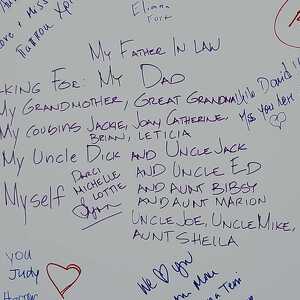 Eliana
Love + Miss
My Father In Law
KING FOR: My DAD
My GRANDMOTHER, GREAT GRANDMA
My COUSINS JACKIE, JOAN, CATHERINE,
BRIAN, LETICIA
David!!
You Here
My UNCLE DICK AND UNCLE JACK
AND UNCLE ED
Myself
DARCI
MICHELLE
LOTTIE
AND AUNT BIBSY
AND AUNT MARION
UNCLE JOE, UNCLE MIKE,
AUNT SHEILA
YOU
JUDY
We ♡ you